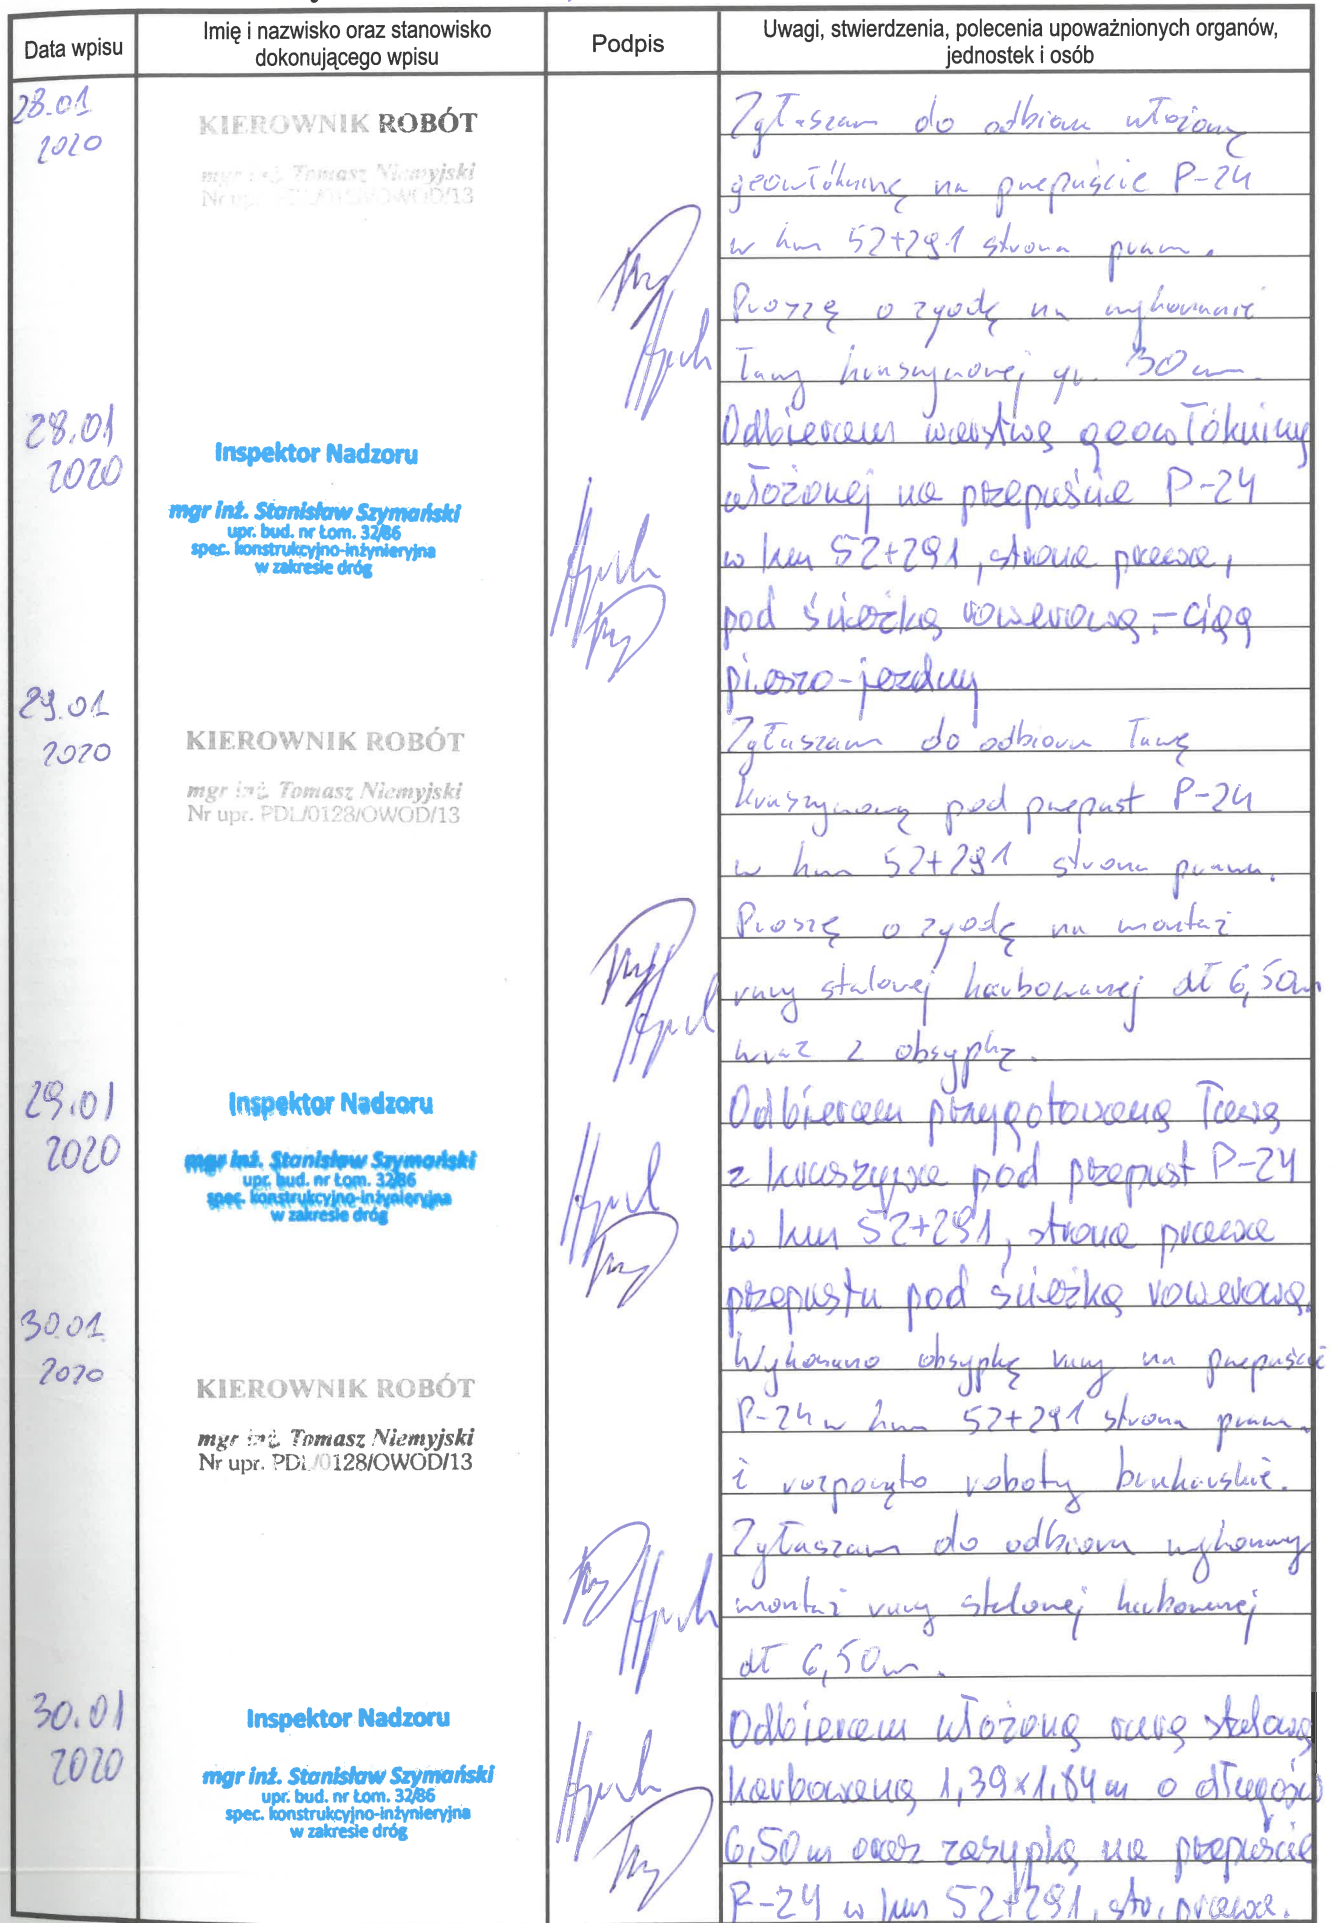 Data wpisu
Imię i nazwisko oraz stanowisko
dokonującego wpisu
Podpis
Uwagi, stwierdzenia, polecenia upoważnionych organów,
jednostek i osób
28.01
2020
KIEROWNIK ROBÓT
mgr inż. Tomasz Niemyjski
Nr upr. PDL/0128/OWOD/13
Zgłaszam do odbioru ułożoną
geowłókninę na przepuście P-24
w km 52+291 strona prawa.
Proszę o zgodę na wykonanie
ławy kruszynowej gr. 30 cm.
28.01
2020
Inspektor Nadzoru
mgr inż. Stanisław Szymański
upr. bud. nr Łom. 32/86
spec. konstrukcyjno-inżynieryjna
w zakresie dróg
Odbieram warstwę geowłókniny
ułożonej na przepuście P-24
w km 52+291, strona prawa,
pod ścieżką rowerową - ciąg
pieszo-jezdny
29.01
2020
KIEROWNIK ROBÓT
mgr inż. Tomasz Niemyjski
Nr upr. PDL/0128/OWOD/13
Zgłaszam do odbioru ławę
kruszynową pod przepust P-24
w km 52+291 strona prawa.
Proszę o zgodę na montaż
rury stalowej karbowanej dł 6,50m
wraz z obsypką.
29.01
2020
Inspektor Nadzoru
mgr inż. Stanisław Szymański
upr. bud. nr Łom. 32/86
spec. konstrukcyjno-inżynieryjna
w zakresie dróg
Odbieram przygotowaną ławę
z kruszywa pod przepust P-24
w km 52+291, strona prawa
przepustu pod ścieżką rowerową.
30.01.
2020
KIEROWNIK ROBÓT
mgr inż. Tomasz Niemyjski
Nr upr. PDL/0128/OWOD/13
Wykonano obsypkę rury na przepuście
P-24 w km 52+291 strona prawa.
i rozpoczęto roboty brukarskie.
Zgłaszam do odbioru wykonany
montaż rury stalowej karbowanej
dł 6,50m.
30.01
2020
Inspektor Nadzoru
mgr inż. Stanisław Szymański
upr. bud. nr Łom. 32/86
spec. konstrukcyjno-inżynieryjna
w zakresie dróg
Odbieram ułożoną rurę stalową
karbowaną 1,39x1,84m o długości
6,50m oraz zasypkę na przepuście
P-24 w km 52+291, str. prawa.